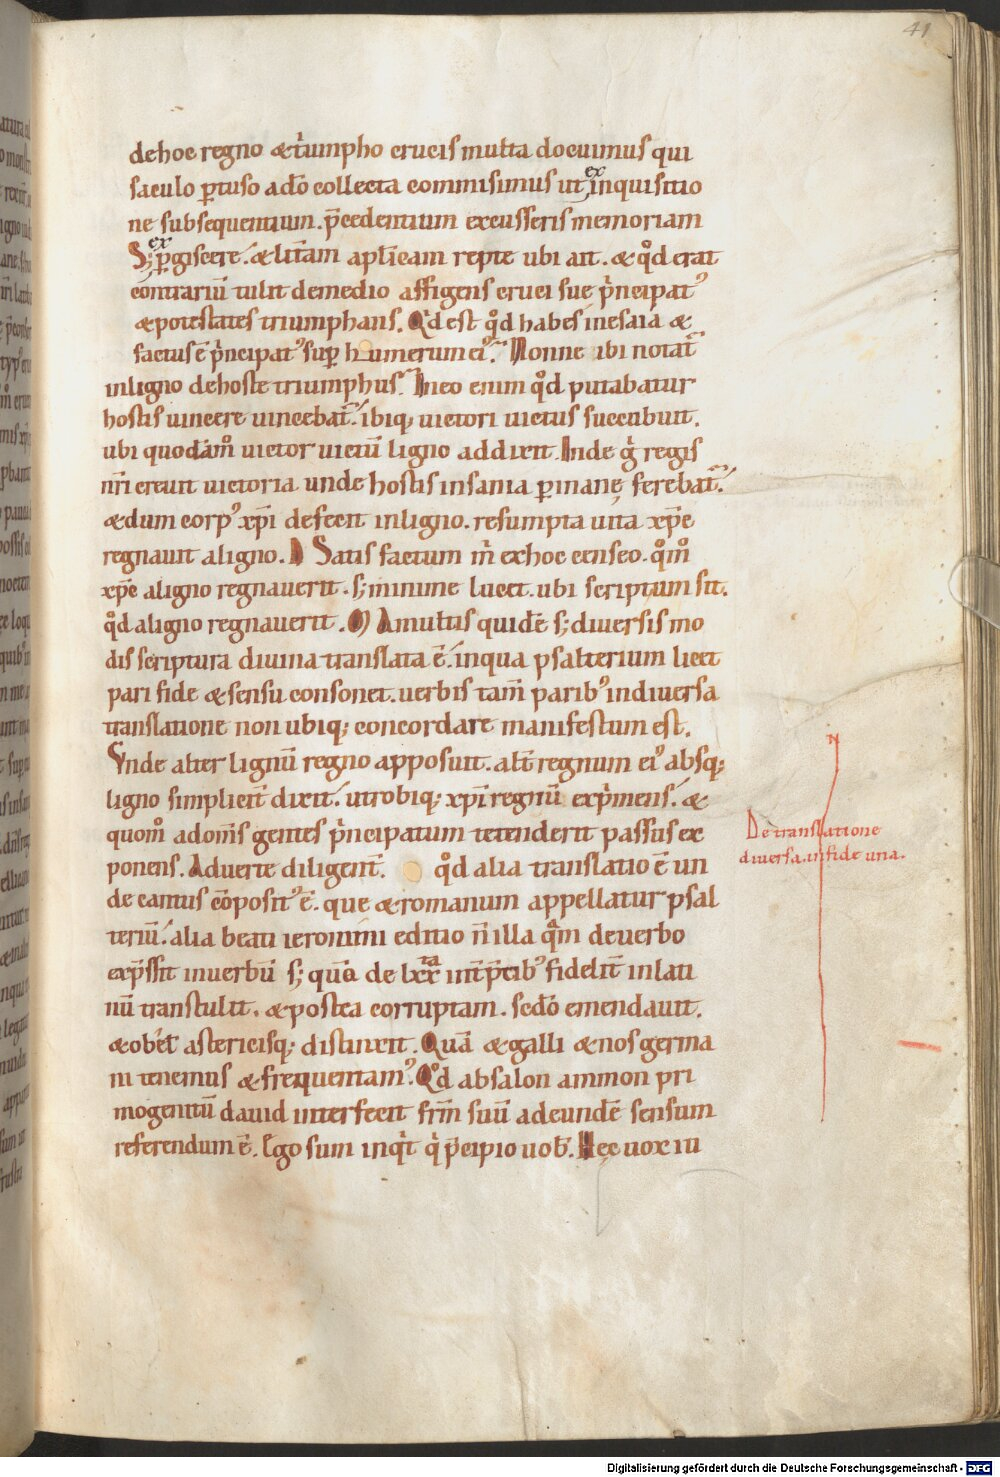 41
dehoc regno &t̉umpho crucis multa docuimus qui
saeculo ꝑtuso adō collecta commisimus ut ex inquisitio
ne subsequentium. p̄cedentium excusseris memoriam
S; ex ꝑgiscere. & lit̄am apl̄icam repte ubi ait. & qd̊ erat
contrariū tulit demedio affigens cruci sue p̉ncipatꝰ
& potestates triumphans. Qd̊ est qd̊ habes inesaia &
factus ē p̉ncipatꝰ suꝑ humerum eiꝰ. Nonne ibi notat̄
inligno dehoste triumphus. Ineo enim qd̊ putabatur
hostis uincere uincebat̄. ibiq; uictori uictus succubuit.
ubi quodam̊ uictor uictū ligno addixit. Inde g̉ regis
nr̄i creuit uictoria unde hostis insania ꝑinanę ferebat̄.
& dum corpꝰ xp̄i defecit inligno. resumpta uita xp̄c
regnauit aligno. D Satis factum m̄ exhoc censeo. qm̊
xp̄c aligno regnauerit. s; minime lucet. ubi scriptum sit.
qd̊ aligno regnauerit. M Amultis quidē s; diuersis mo
dis scriptura diuina translata ē. inqua psalterium licet
pari fide & sensu consonet. uerbis tam̄ paribꝰ indiuersa
translatione non ubiq; concordare manifestum est.
Vnde alter lignū regno apposuit. alt̄ regnum eiꝰ absq;
ligno simplicit̄ dixit. utrobiq; xp̄i regnū exp̉mens. &
quom̊ adom̄s gentes p̉ncipatum tetenderit passus ex
ponens. Aduerte diligent̄. qd̊ alia translatio ē un
de cantus cōpositꝰ ē. que & romanum appellatur psal
teriū. alia beati ieronimi editio n̄ illa quam deuerbo
exp̄ssit inuerbū s; quā de lxxta int̄p̄tibꝰ fidelit̄ inlati
nū transtulit. & postea corruptam. sedō emendauit.
& obel̄ astericisq; distinxit. Quā & galli & nos germa
ni tenemus & frequentamꝰ. Qd̊ absalon ammon pri
mogenitū dauid interfecit frm̄ suū adeundē sensum
referendum ē. Ego sum inqt̉ q̉ p̄cipio uob̄. Hęc uox iu
N
De translatione
diuersa. infide una.
Digitalisierung gefördert durch die Deutsche Forschungsgemeinschaft - DFG